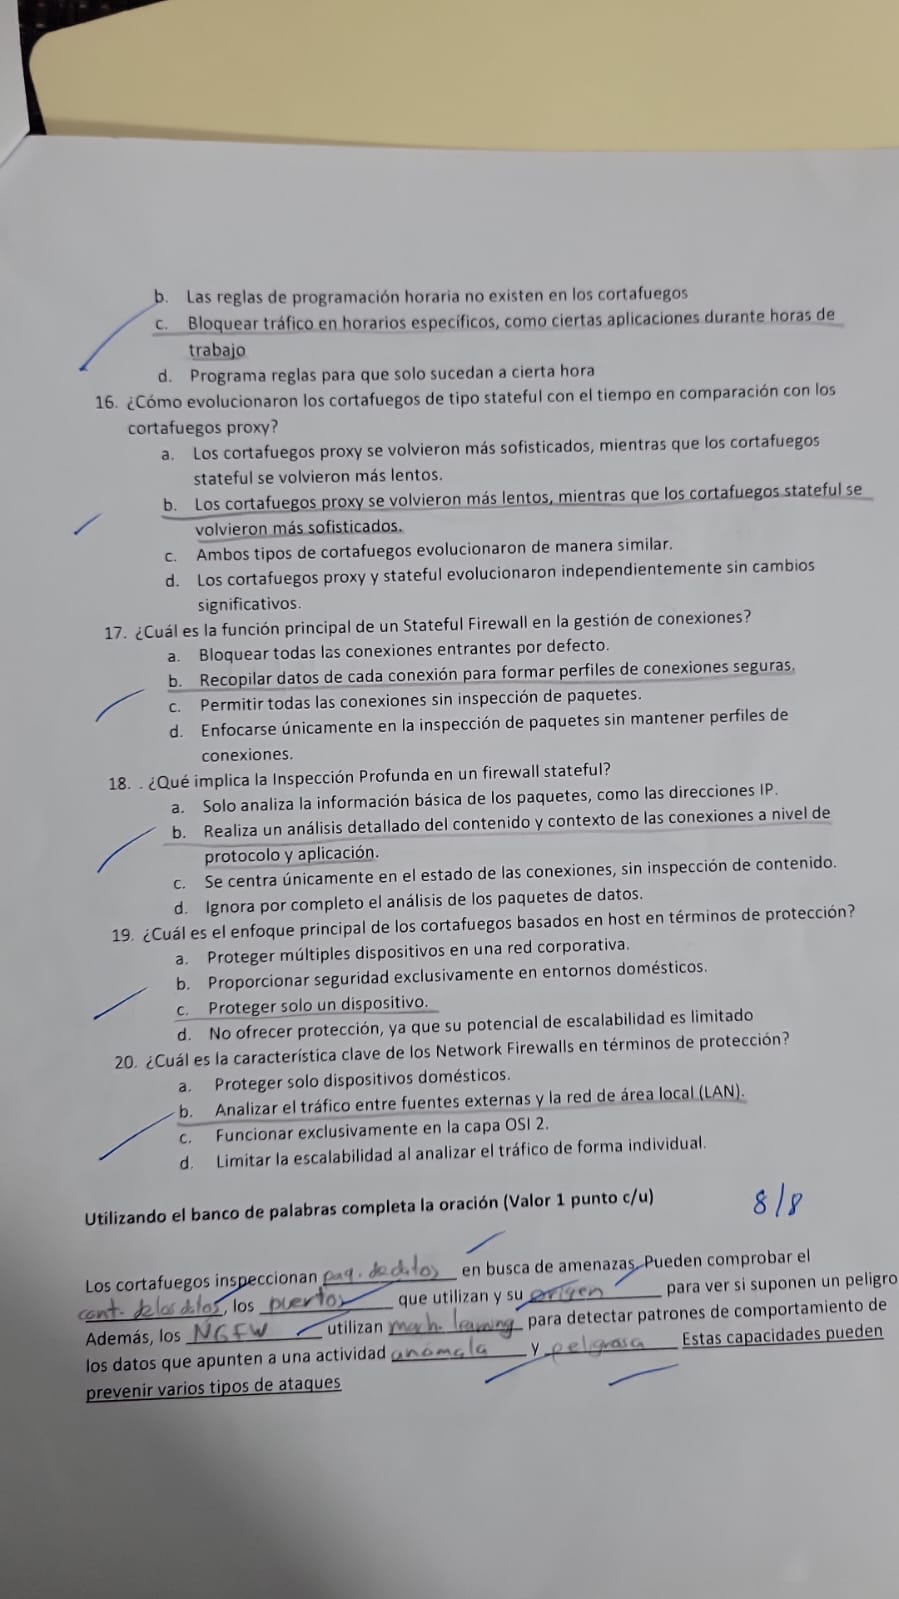 b. Las reglas de programación horaria no existen en los cortafuegos
c. Bloquear tráfico en horarios específicos, como ciertas aplicaciones durante horas de
trabajo
d. Programa reglas para que solo sucedan a cierta hora
16. ¿Cómo evolucionaron los cortafuegos de tipo stateful con el tiempo en comparación con los
cortafuegos proxy?
a. Los cortafuegos proxy se volvieron más sofisticados, mientras que los cortafuegos
stateful se volvieron más lentos.
b. Los cortafuegos proxy se volvieron más lentos, mientras que los cortafuegos stateful se
volvieron más sofisticados.
c. Ambos tipos de cortafuegos evolucionaron de manera similar.
d. Los cortafuegos proxy y stateful evolucionaron independientemente sin cambios
significativos.
17. ¿Cuál es la función principal de un Stateful Firewall en la gestión de conexiones?
a. Bloquear todas las conexiones entrantes por defecto.
b. Recopilar datos de cada conexión para formar perfiles de conexiones seguras.
c. Permitir todas las conexiones sin inspección de paquetes.
d. Enfocarse únicamente en la inspección de paquetes sin mantener perfiles de
conexiones.
18. . ¿Qué implica la Inspección Profunda en un firewall stateful?
a. Solo analiza la información básica de los paquetes, como las direcciones IP.
b. Realiza un análisis detallado del contenido y contexto de las conexiones a nivel de
protocolo y aplicación.
c. Se centra únicamente en el estado de las conexiones, sin inspección de contenido.
d. Ignora por completo el análisis de los paquetes de datos.
19. ¿Cuál es el enfoque principal de los cortafuegos basados en host en términos de protección?
a. Proteger múltiples dispositivos en una red corporativa.
b. Proporcionar seguridad exclusivamente en entornos domésticos.
c. Proteger solo un dispositivo.
d. No ofrecer protección, ya que su potencial de escalabilidad es limitado
20. ¿Cuál es la característica clave de los Network Firewalls en términos de protección?
a. Proteger solo dispositivos domésticos.
b. Analizar el tráfico entre fuentes externas y la red de área local (LAN).
c. Funcionar exclusivamente en la capa OSI 2.
d. Limitar la escalabilidad al analizar el tráfico de forma individual.
Utilizando el banco de palabras completa la oración (Valor 1 punto c/u) 8/8
Los cortafuegos inspeccionan paq. de datos en busca de amenazas. Pueden comprobar el
cont. de los datos, los puertos que utilizan y su origen para ver si suponen un peligro
Además, los NGFW utilizan mach. learning para detectar patrones de comportamiento de
los datos que apunten a una actividad anómala y peligrosa Estas capacidades pueden
prevenir varios tipos de ataques